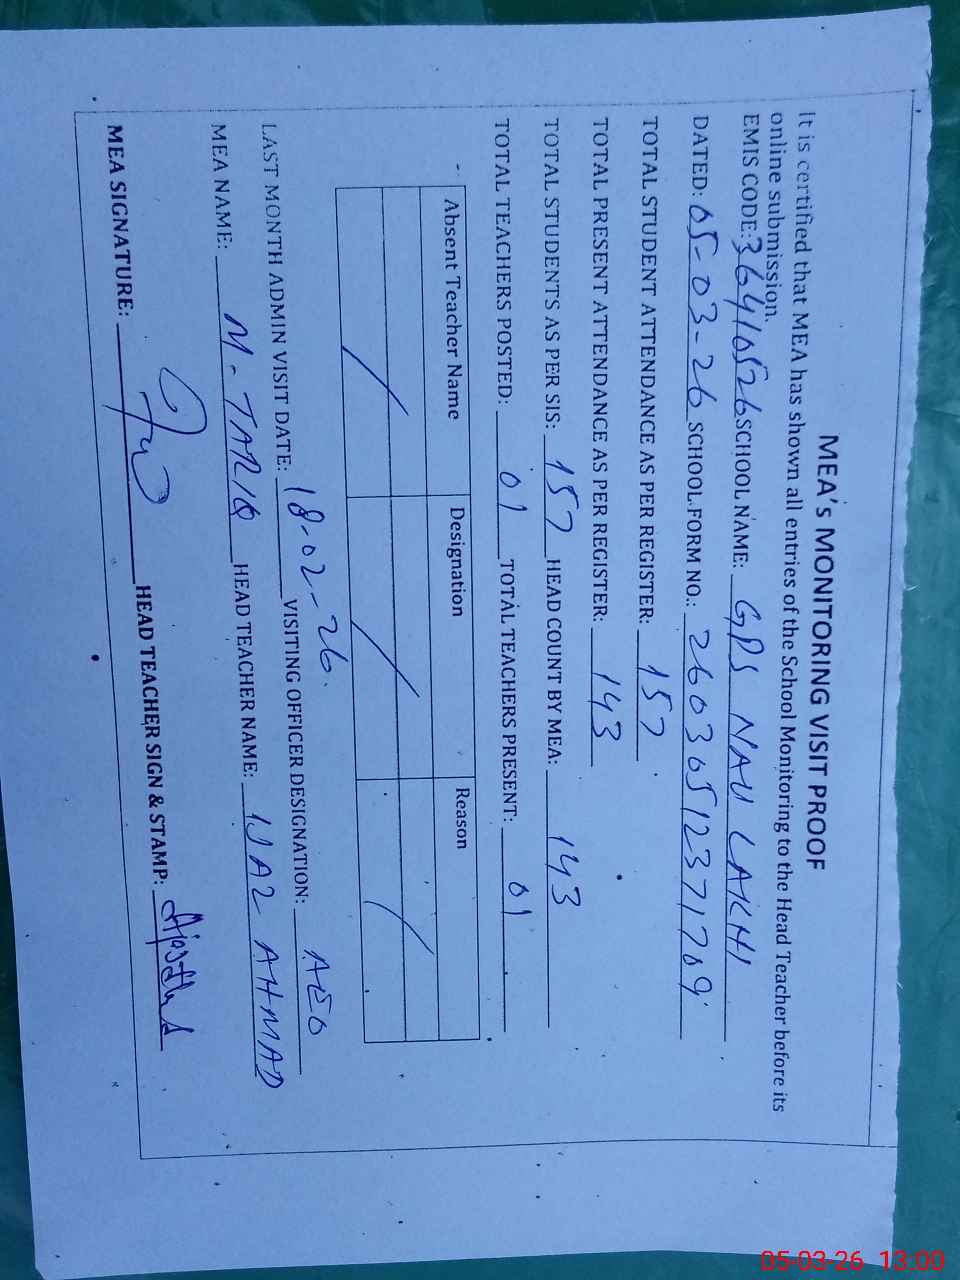 MEA's MONITORING VISIT PROOF
It is certified that MEA has shown all entries of the School Monitoring to the Head Teacher before its
online submission.
EMIS CODE: 36410526 SCHOOL NAME: GPS NAU LAKHI
DATED: 05-03-26 SCHOOL FORM NO.: 26030512371709
TOTAL STUDENT ATTENDANCE AS PER REGISTER: 157
TOTAL PRESENT ATTENDANCE AS PER REGISTER: 143
TOTAL STUDENTS AS PER SIS: 157 HEAD COUNT BY MEA: 143
TOTAL TEACHERS POSTED: 01 TOTAL TEACHERS PRESENT: 01
Absent Teacher Name Designation Reason
LAST MONTH ADMIN VISIT DATE: 18-02-26. VISITING OFFICER DESIGNATION: AEO
MEA NAME: M-TARIQ HEAD TEACHER NAME: AHMAD
MEA SIGNATURE: HEAD TEACHER SIGN & STAMP:
05-03-26 13:00